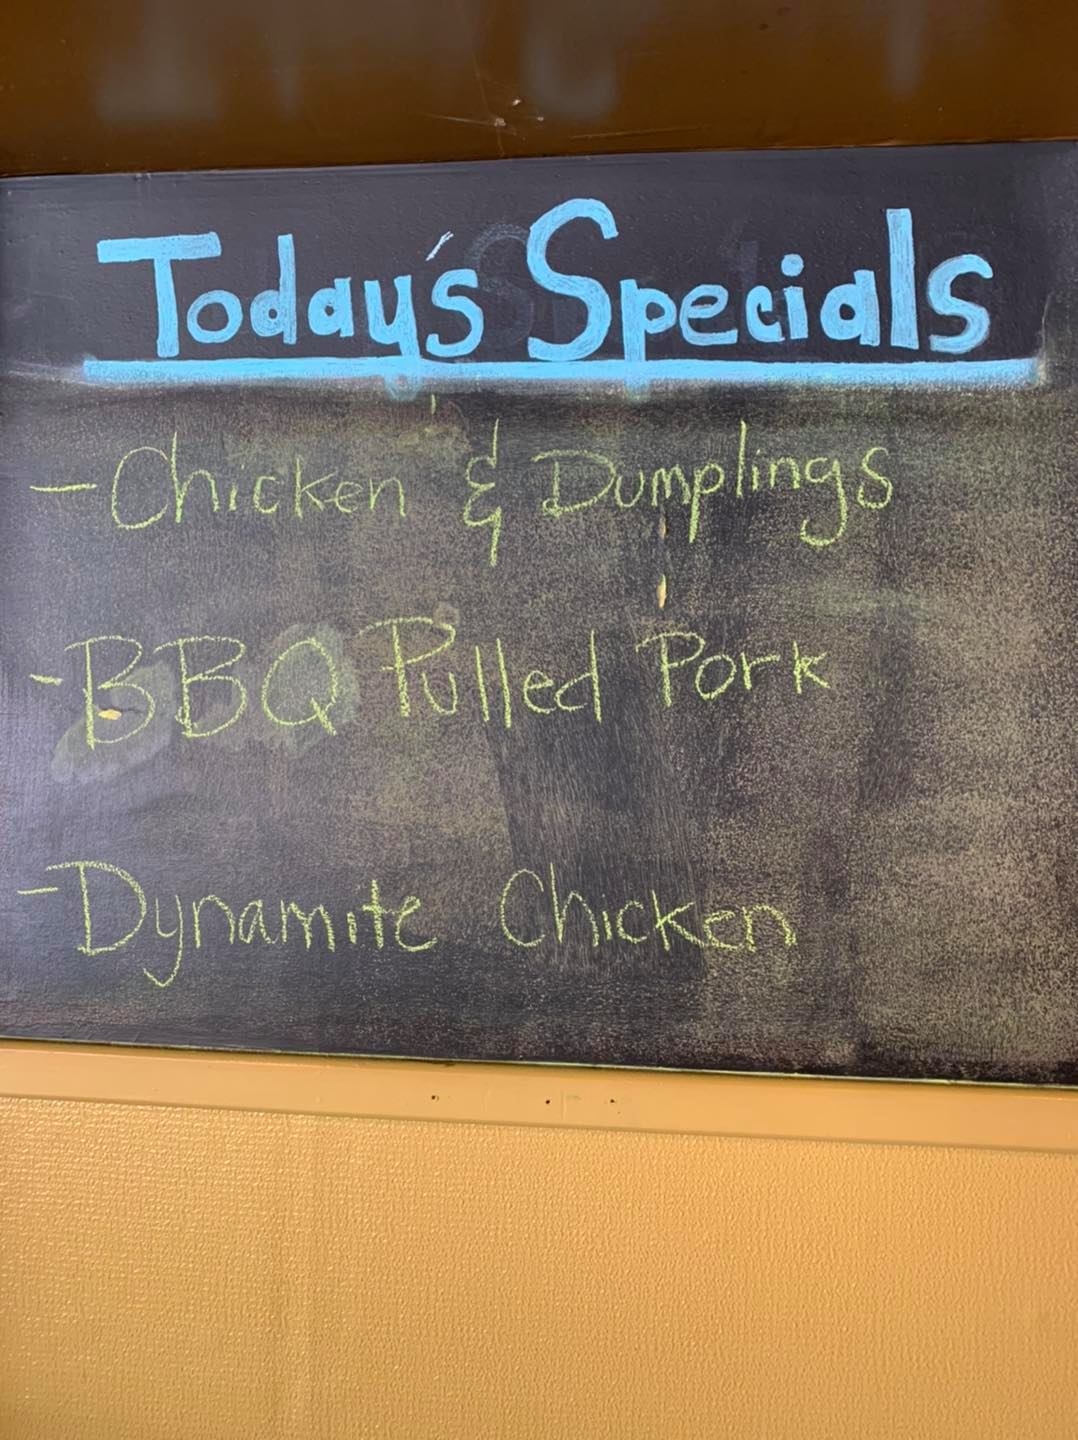 Today's Specials
- Chicken & Dumplings
- BBQ Pulled Pork
- Dynamite Chicken